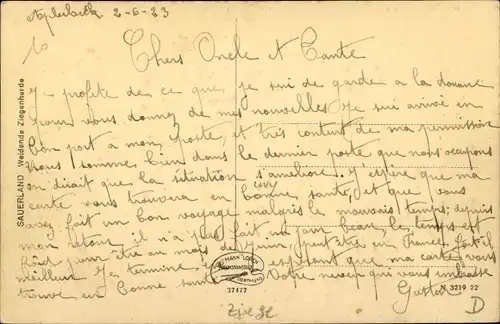 Aplerbeck 2-6-23
Chers Oncle et Tante
Je profite de ce que je sui de garde a la douane
pour vous donnez de mes nouvelles. Je sui arrivé en
bon port a mon poste, et très content de ma permission
Nous somme bien dans le dernier poste que nous occupons
on dirait que la sítuation s'ameliore. J'espère que ma
carte vous trouvera en bonne santé, et que vous
avez fait un bon voyage malgrès le mauvais temps; depuis
mon retour il n'a pas fait un beau, le temps est
froid pour être au mois de Juin, peut être en France fait-il
meilleur. Je termine en esperant que ma carte vous
trouve en bonne santé Votre neveu qui vous embrasse
Gaston
SAUERLAND Weidende Ziegenherde
37477
N 3219 22
D